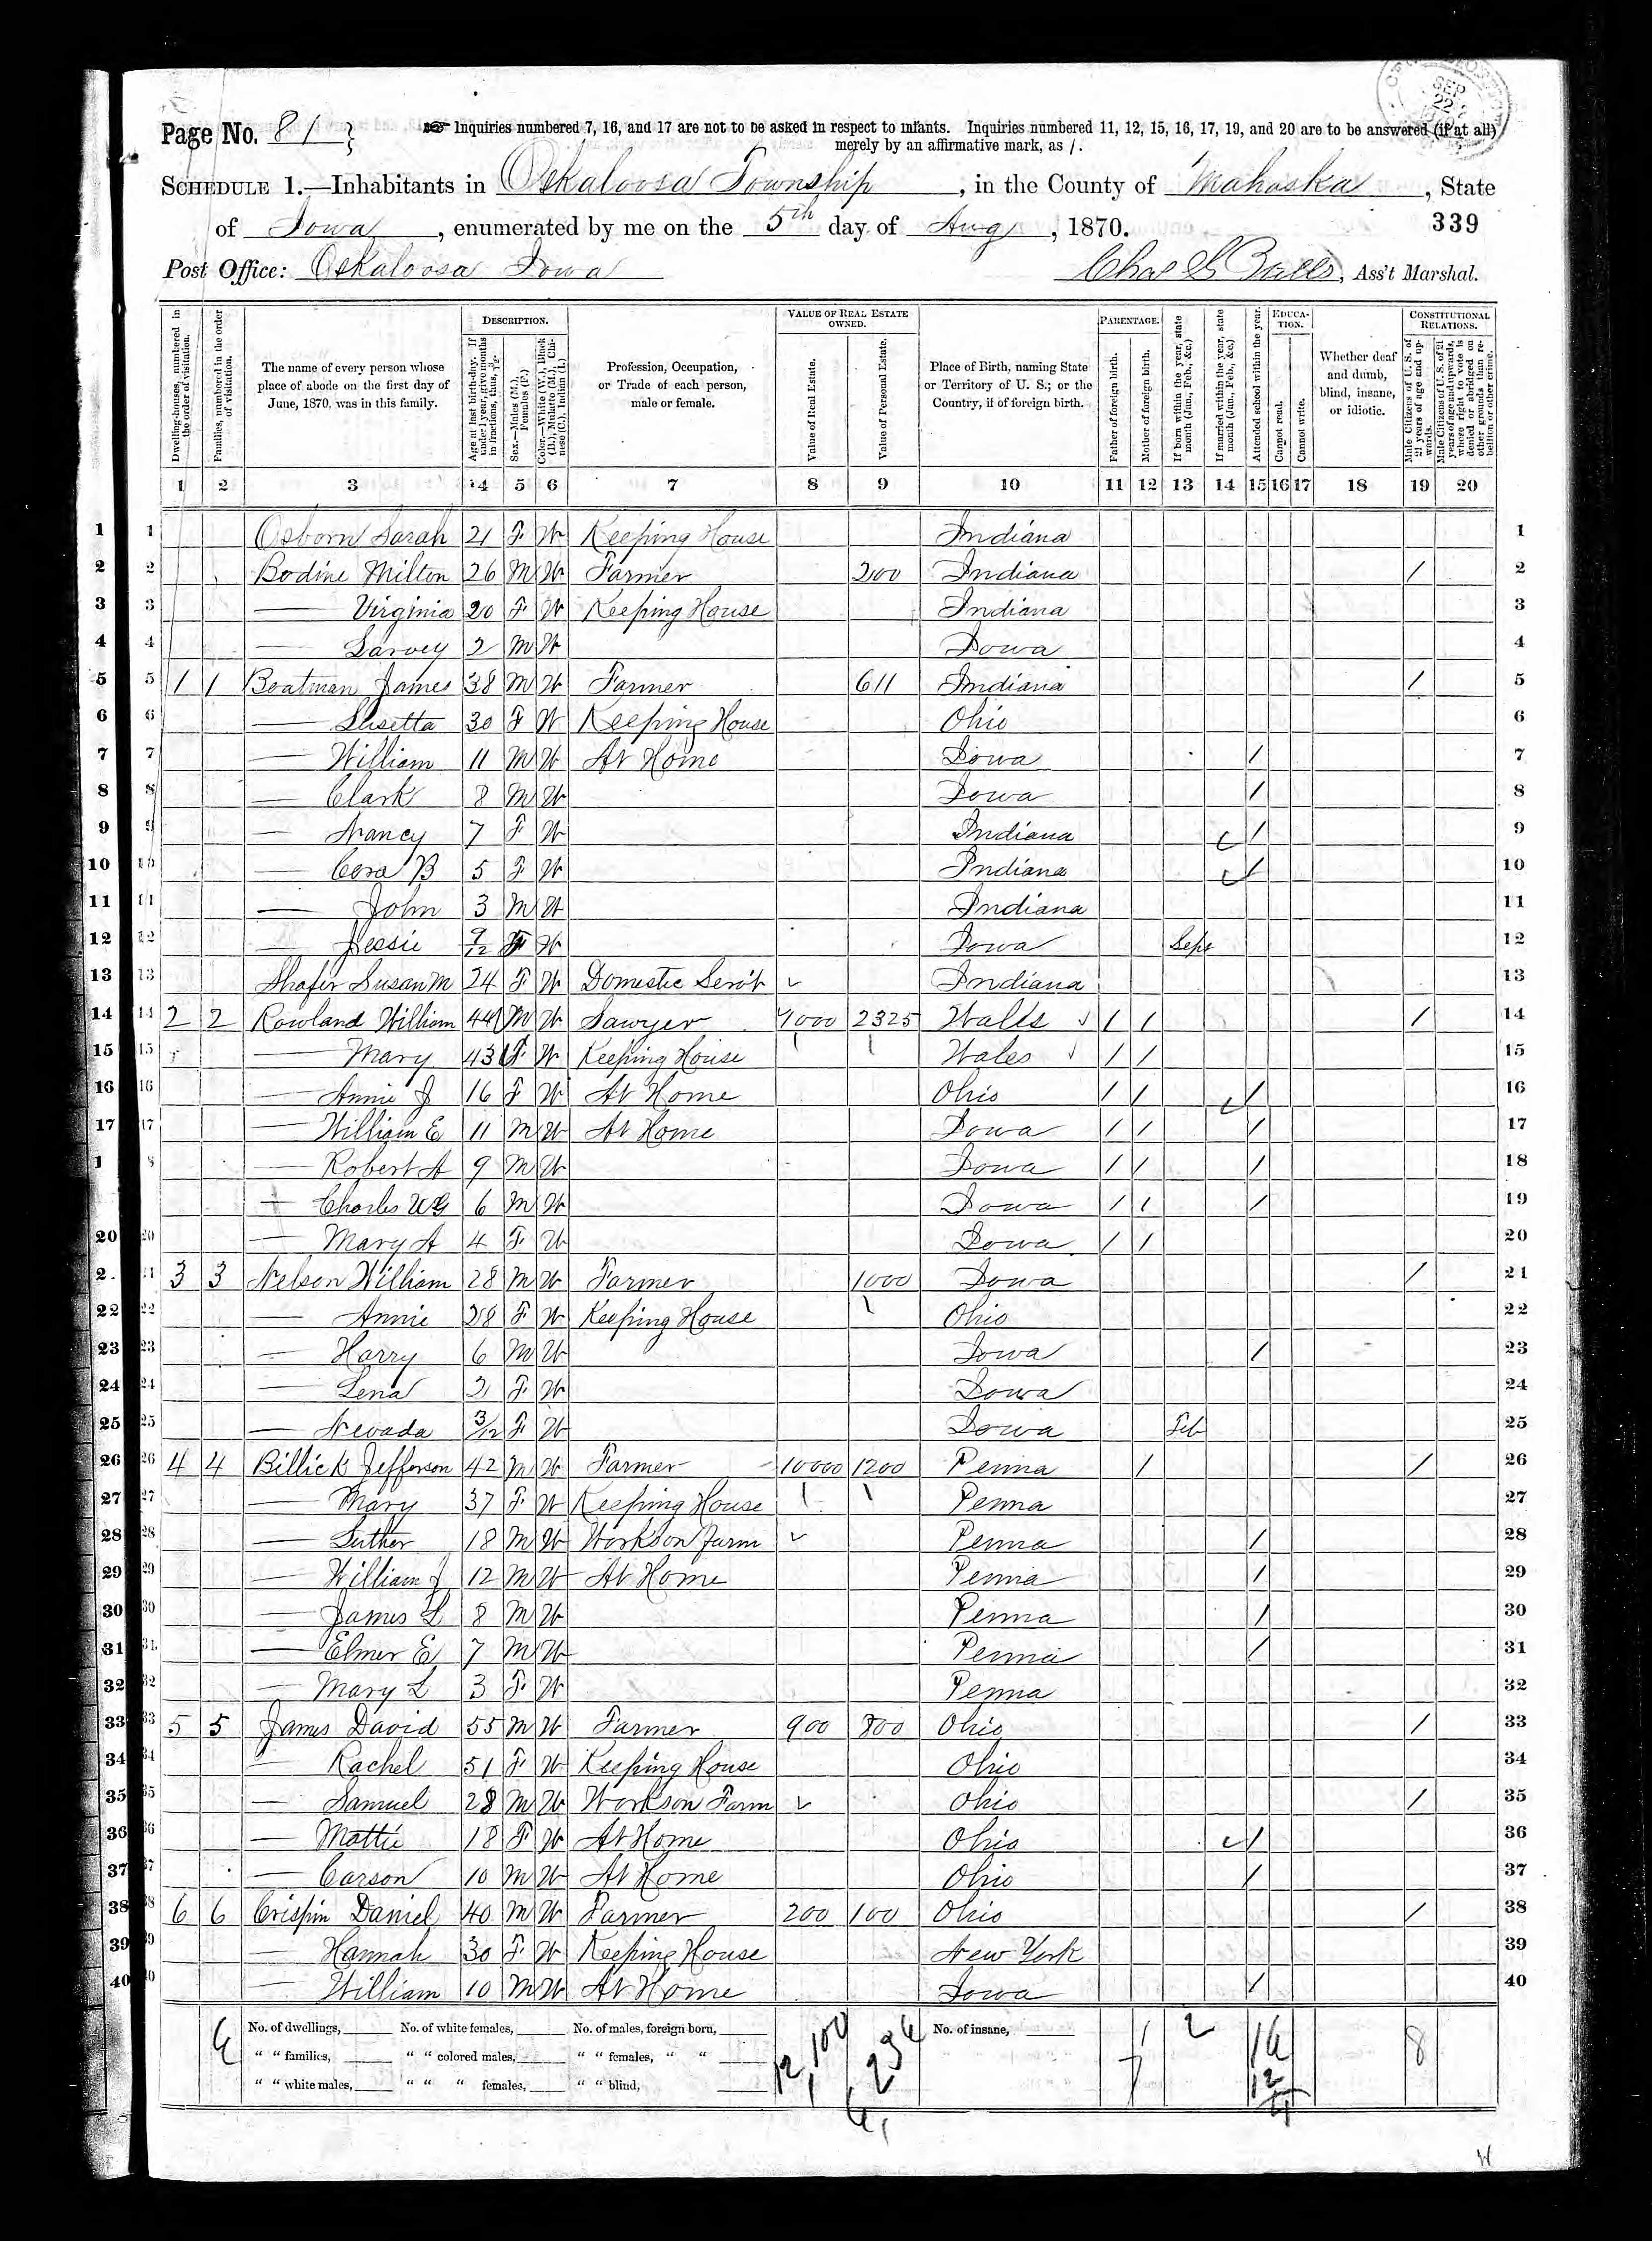 Page No. 81
Inquiries numbered 7, 16, and 17 are not to be asked in respect to infants. Inquiries numbered 11, 12, 15, 16, 17, 19, and 20 are to be answered (if at all)
merely by an affirmative mark, as /.
SCHEDULE 1.—Inhabitants in Oskaloosa Township, in the County of Mahaska, State
of Iowa, enumerated by me on the 5th day of Aug, 1870.
339
Post Office: Oskaloosa Iowa
Chas S, Ass't Marshal.
Dwelling-houses, numbered in the order of visitation.
Families, numbered in the order of visitation.
The name of every person whose place of abode on the first day of June, 1870, was in this family.
DESCRIPTION.
Age at last birth-day. If under 1 year, give months in fractions, thus, 3/12.
Sex.—Males (M.), Females (F.)
Color.—White (W.), Black (B.), Mulatto (M.), Chinese (C.), Indian (I.)
Profession, Occupation, or Trade of each person, male or female.
VALUE OF REAL ESTATE OWNED.
Value of Real Estate.
Value of Personal Estate.
Place of Birth, naming State or Territory of U. S.; or the Country, if of foreign birth.
PARENTAGE.
Father of foreign birth.
Mother of foreign birth.
If born within the year, state month (Jan., Feb., &c.)
If married within the year, state month (Jan., Feb., &c.)
Attended school within the year.
EDUCATION.
Cannot read.
Cannot write.
Whether deaf and dumb, blind, insane, or idiotic.
CONSTITUTIONAL RELATIONS.
Male Citizens of U. S. of 21 years of age and upwards.
Male Citizens of U. S. of 21 years of age and upwards, where right to vote is denied or abridged on other grounds than rebellion or other crime.
1 2 3 4 5 6 7 8 9 10 11 12 13 14 15 16 17 18 19 20
1 1 Osborn Sarah 21 F W Keeping House Indiana 1
2 2 Bodine Milton 26 M W Farmer 200 Indiana / 2
3 3 — Virginia 20 F W Keeping House Indiana 3
4 4 — Larvey 2 M W Iowa 4
5 5 1 1 Boatman James 38 M W Farmer 611 Indiana / 5
6 6 — Lusetta 30 F W Keeping House Ohio 6
7 7 — William 11 M W At Home Iowa / 7
8 8 — Clark 8 M W Iowa / 8
9 9 — Nancy 7 F W Indiana / 9
10 10 — Cora B 5 F W Indiana / 10
11 11 — John 3 M W Indiana 11
12 12 — Jessie 9/12 F W Iowa Sept 12
13 13 Shafer Susan M 24 F W Domestic Serv't Indiana 13
14 14 2 2 Rowland William 44 M W Sawyer 2325 Wales / / / 14
15 15 — Mary 43 F W Keeping House Wales / / 15
16 16 — Annie J 16 F W At Home Ohio / / / 16
17 17 — William E 11 M W At Home Iowa / / / 17
1 8 — Robert A 9 M W Iowa / / / 18
— Charles W G 6 M W Iowa / / / 19
20 20 — Mary A 4 F W Iowa / / 20
2 1 3 3 Nelson William 28 M W Farmer 1000 Iowa / 21
22 22 — Annie 28 F W Keeping House Ohio 22
23 23 — Harry 6 M W Iowa / 23
24 24 — Lena 2 F W Iowa 24
25 25 — Nevada 3/12 F W Iowa Feb 25
26 26 4 4 Billick Jefferson 42 M W Farmer 10000 1200 Penna / / 26
27 27 — Mary 37 F W Keeping House Penna 27
28 28 — Luther 18 M W Works on farm Penna / 28
29 29 — William J 12 M W At Home Penna / 29
30 30 — James L 8 M W Penna / 30
31 31 — Elmer E 7 M W Penna / 31
32 32 — Mary L 3 F W Penna 32
33 33 5 5 James David 55 M W Farmer 900 800 Ohio / 33
34 34 — Rachel 51 F W Keeping House Ohio 34
35 35 — Samuel 28 M W Works on Farm Ohio / 35
36 36 — Mattie 18 F W At Home Ohio / 36
37 37 — Carson 10 M W At Home Ohio / 37
38 38 6 6 Crispin Daniel 40 M W Farmer 200 100 Ohio / 38
39 39 — Hannah 30 F W Keeping House New York 39
40 40 — William 10 M W At Home Iowa / 40
No. of dwellings, No. of white females, No. of males, foreign born, No. of insane,
" " families, " " colored males, " " females, " "
" " white males, " " " females, " " blind,
2 8